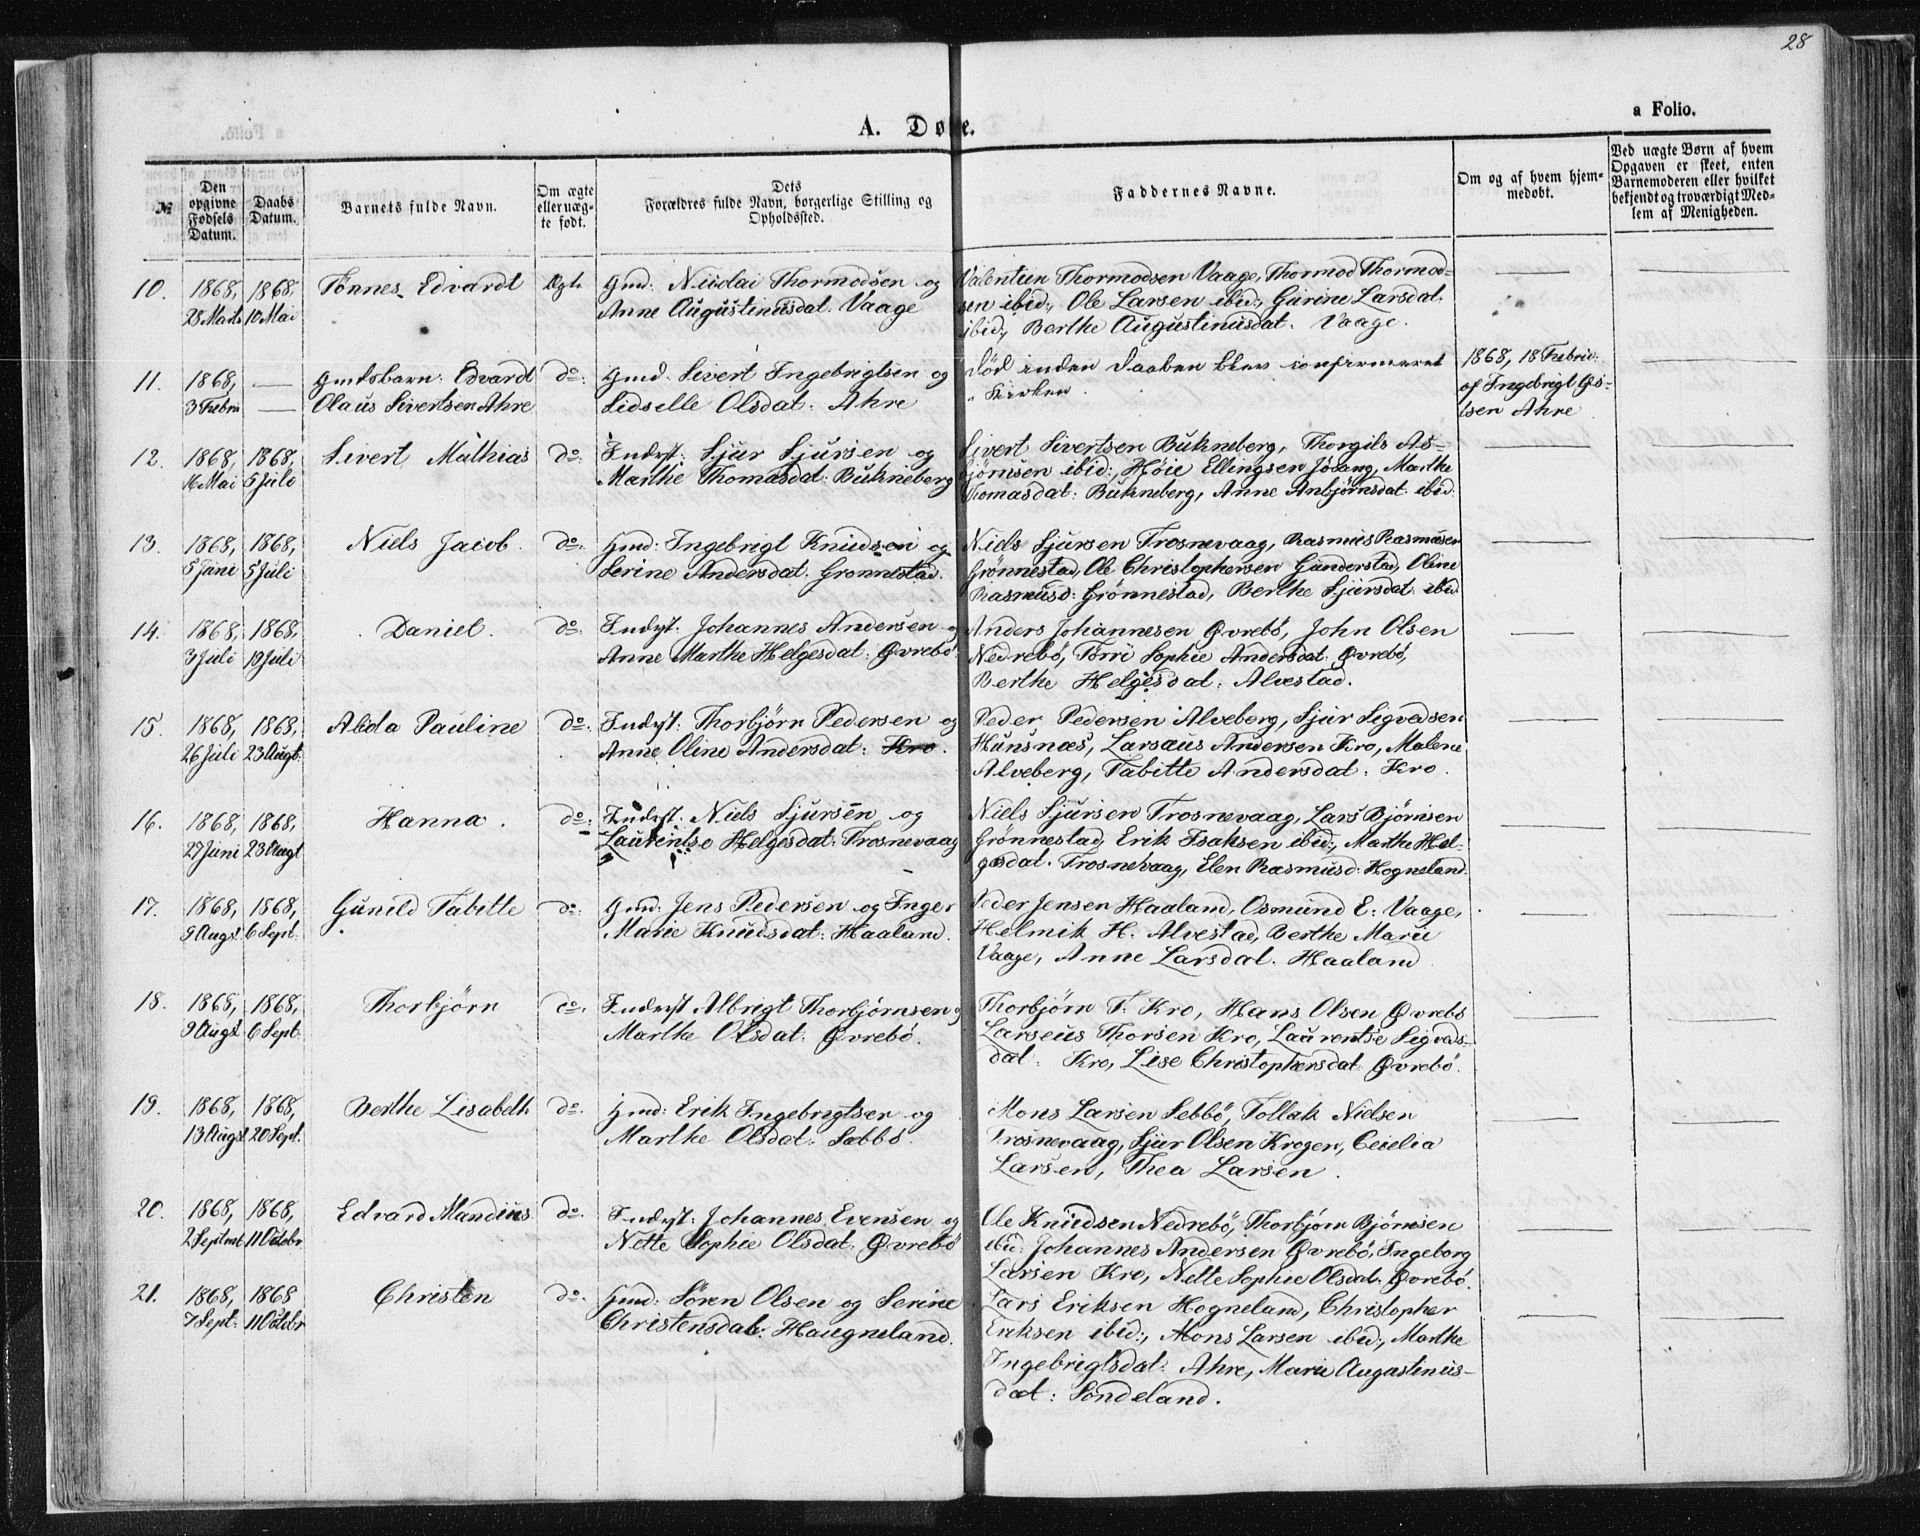 28
a Folio.
A. Dø e.
№
Den opgivne Fødsels Datum.
Daabs Datum.
Barnets fulde Navn.
Om ægte eller uægte født.
Dets Forældres fulde Navn, borgerlige Stilling og Opholdssted.
Faddernes Navne.
Om og af hvem hjemmedøbt.
Ved uægte Børn af hvem Opgaven er skeet, enten Barnemoderen eller hvilket bekjendt og troværdigt Medlem af Menigheden.
10. 1868, 1868, Tønnes Edvardt Ægt. Gmd: Nicolai Thormodsen og Valentin Thormodsen Vaage, Thormod Thormod-
28 Marts 10 Mai Anne Augustinusdat. Vaage sen ibid:, Ole Larsen ibid:, Gurine Larsdat.
ibid:, Berthe Augustinusdat. Vaage.
11. 1868, — Gmdsbarn: Edvardt do: Gmd. Sivert Ingebrigtsen og Død inden Daaben blev confirmeret 1868, 18 Febru:
3 Febru — Olaus Sivertsen Ahre Lidselle Olsdat. Ahre i Kirken. af Ingebrigt
sen Ahre
12. 1868, 1868, Sivert Mathias do: Indyst: Sjur Sjursen og Sivert Sivertsen Bukneberg, Thorgils As-
16 Mai 5 Juli Marthe Thomasdat: Bukneberg bjørnsen ibid:, Høie Ellingsen Jøsang, Marthe
Thomasdat: Bukneberg, Anne Anbjørnsdat: ibid:
13. 1868, 1868, Niels Jacob. do: Gmd: Ingebrigt Knudsen og Niels Sjursen Trosnevaag, Rasmus Rasmusen
5 Juni 5 Juli Serine Andersdat. Grønnestad. Grønnestad, Ole Christophersen Gunderstad, Oline
Rasmusd: Grønnestad, Berthe Sjursdat: ibid
14. 1868, 1868, Daniel. do: Indyst: Johannes Andersen og Anders Johannesen Øvrebø, John Olsen
3 Juli 19 Juli Anne Marthe Helgesdat: Øvrebø Nedrebø, Torri Sophie Andersdat: Øvrebø,
Berthe Helgesdat: Alvestad.
15. 1868, 1868, Alida Pauline do: Indyst: Thorbjørn Pedersen og Peder Pedersen Alveberg, Sjur Sigvedsen
26 Juli 23 Augt. Anne Oline Andersdat: Kro. Hunsnæs, Larsæus Andersen Kro, Malene
Alveberg, Tabitte Andersdat: Kro.
16. 1868, 1868, Hanna. do: Indyst. Niels Sjursen og Niels Sjursen Trosnevaag, Lars Bjørnsen
27 Juni 23 Augt Laurentse Helgesdat: Trosnevaag Grønnestad, Erik Isaksen ibid:, Marthe Hel-
gesdat. Trosnevaag, Elen Rasmusd: Hogneland.
17. 1868, 1868, Gunild Tabitte do: Gmd: Jens Pedersen og Inger Peder Jensen Haaland, Osmund E: Vaage,
9 Augst 6 Sept. Marie Knudsdat: Haaland. Helmik H. Alvestad, Berthe Marie
Vaage, Anne Larsdat. Haaland
18. 1868, 1868, Thorbjørn do: Indyst Albrigt Thorbjørnsen og Thorbjørn T. Kro, Hans Olsen Øvrebø
9 Augst 6 Sept. Marthe Olsdat: Øvrebø. Larseus Thorsen Kro, Laurentse Sigveds-
dat: Kro, Lise Christophersdat: Øvrebø.
19. 1868, 1868, Berthe Lisabeth do. Gmd: Erik Ingebrigtsen og Mons Larsen Sebbø, Tollak Nielsen
13 Augst 20 Sept. Marthe Olsdat: Sæbbø. Trosnevaag, Sjur Olsen Krogen, Cecelia
Larsen, Thea Larsen.
20. 1868, 1868, Edvard Mandius do. Indyst: Johannes Evensen og Ole Knudsen Nedrebø, Thorbjørn Bjørnsen
2 Septmt 11 Octobr Nette Sophie Olsdat: Øvrebø ibid: Johannes Andersen Øvrebø, Ingeborg
Larsen Kro, Nette Sophie Olsdat: Øvrebø.
21. 1868, 1868 Christen do. Gmd: Søren Olsen og Serine Lars Eriksen Hogneland, Christopher
7 Sept: 11 Octobr Christensdat: Haugneland. Eriksen ibid:, Mons Larsen ibid:, Marthe
Ingebrigtsdat: Ahre, Marie Augastinus-
dat: Søndeland.